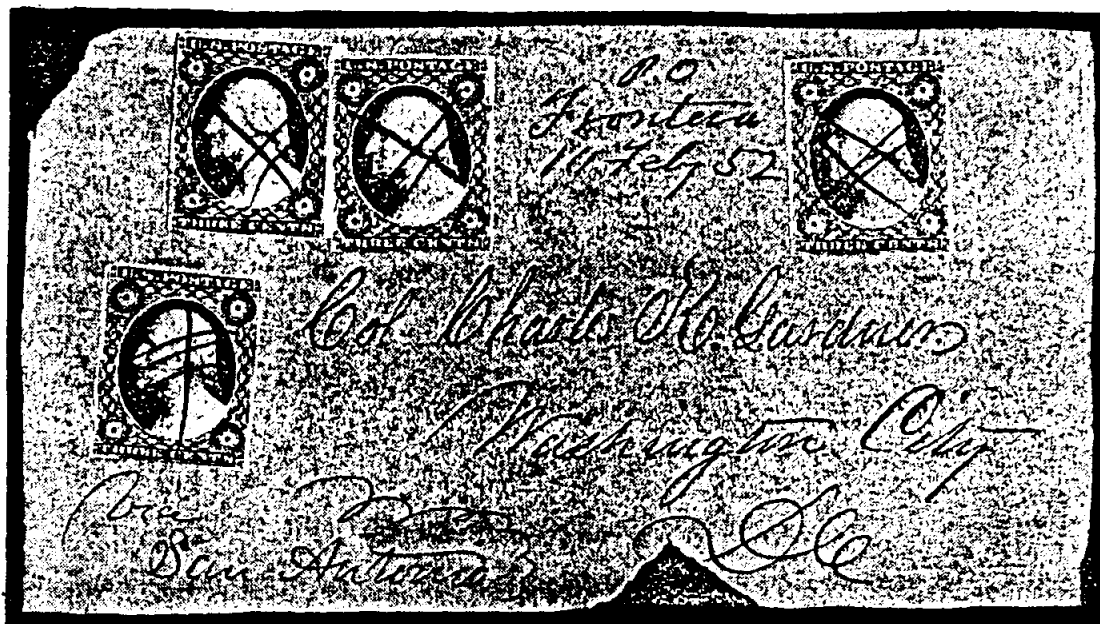 U.S. POSTAGE
THREE CENTS
U.S. POSTAGE
THREE CENTS
P.O
Frontera
14 Feby 52
U.S. POSTAGE
THREE CENTS
U.S. POSTAGE
THREE CENTS
Col Charles K. Gardner
Washington City
DC
via
San Antonio